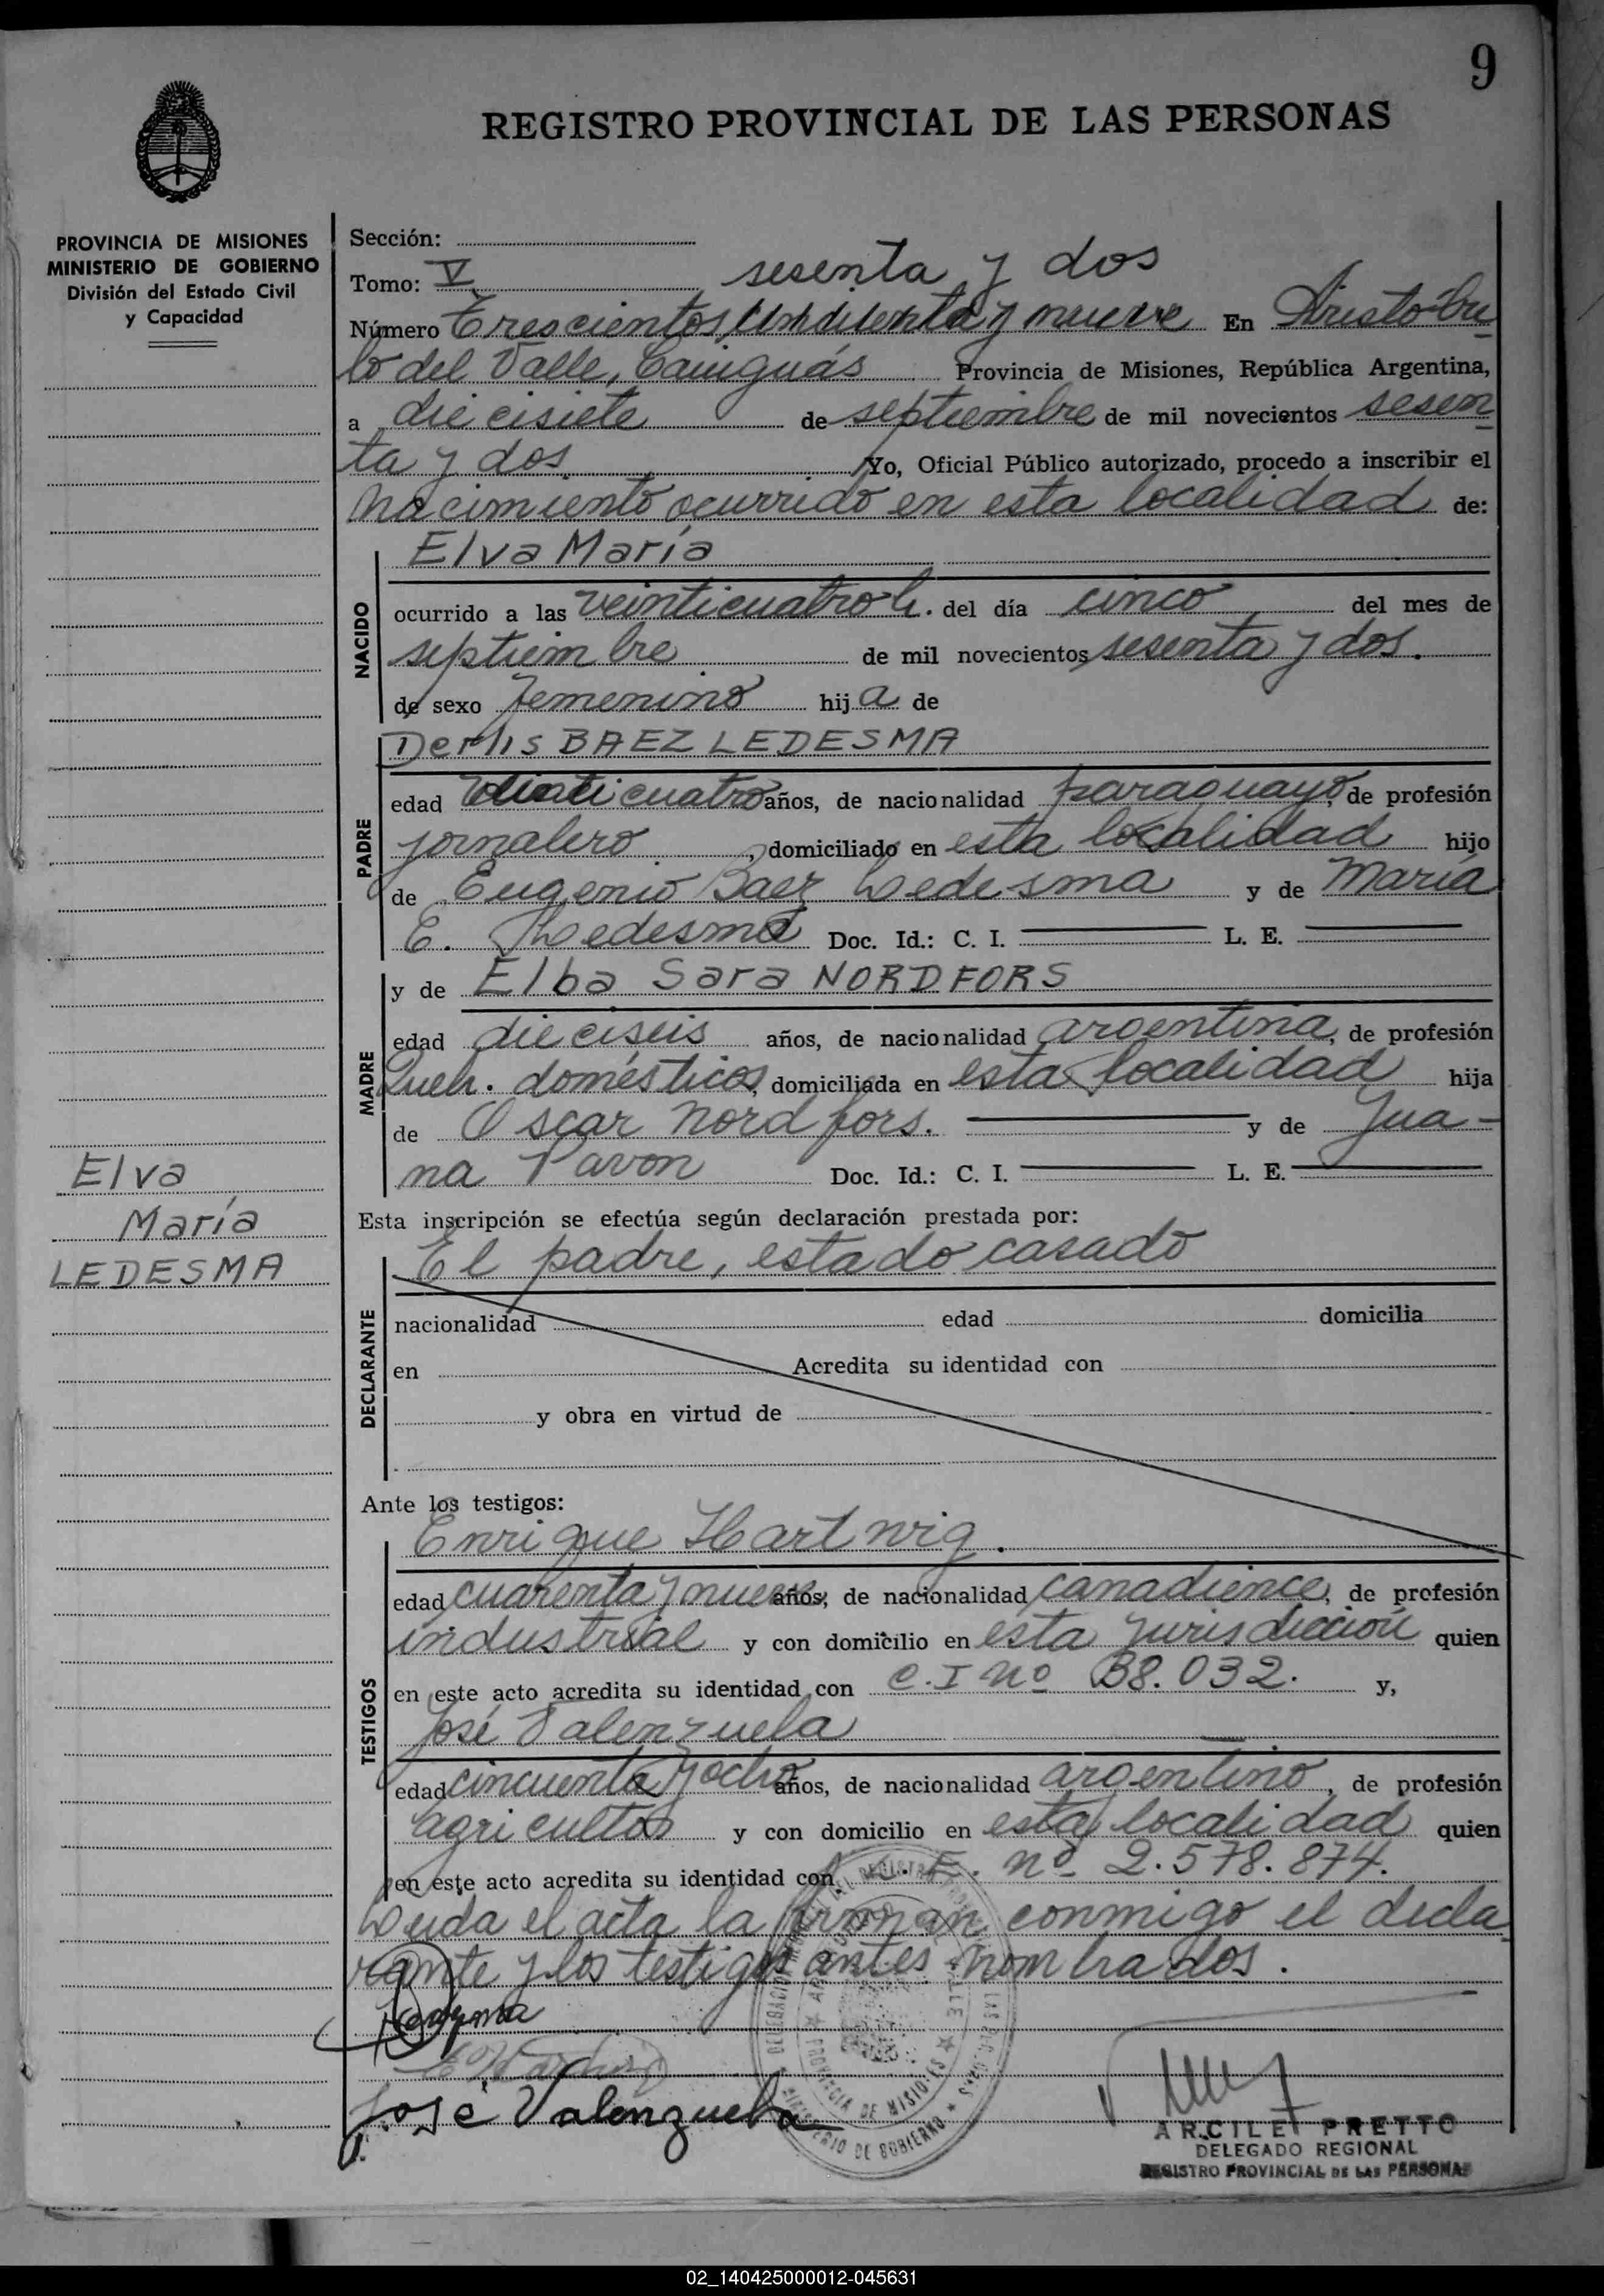 9
REGISTRO PROVINCIAL DE LAS PERSONAS
PROVINCIA DE MISIONES
MINISTERIO DE GOBIERNO
División del Estado Civil
y Capacidad
Elva
María
LEDESMA
Sección:
Tomo: V sesenta y dos
Número Trescientos y nueve En Aristóbu
lo del Valle, Cainguás Provincia de Misiones, República Argentina,
a diecisiete de septiembre de mil novecientos sesen
ta y dos Yo, Oficial Público autorizado, procedo a inscribir el
nacimiento ocurrido en esta localidad de:
Elva María
NACIDO
ocurrido a las veinticuatro h. del día cinco del mes de
septiembre de mil novecientos sesenta y dos.
de sexo femenino hija de
Derlis BAEZ LEDESMA
PADRE
edad veinticuatro años, de nacionalidad paraguayo, de profesión
jornalero, domiciliado en esta localidad hijo
de Eugenio Baez Ledesma y de María
E. Ledesma Doc. Id.: C. I. L. E.
MADRE
y de Elba Sara NORDFORS
edad dieciseis años, de nacionalidad argentina, de profesión
Queh. domésticos, domiciliada en esta localidad hija
de Oscar Nordfors. y de Jua-
na Pavon Doc. Id.: C. I. L. E.
Esta inscripción se efectúa según declaración prestada por:
El padre, estado casado
DECLARANTE
nacionalidad edad domicilia
en Acredita su identidad con
y obra en virtud de
Ante los testigos:
Enrique Hartwig.
TESTIGOS
edad cuarenta y nueve años, de nacionalidad canadience, de profesión
industrial y con domicilio en esta jurisdicción quien
en este acto acredita su identidad con C.I nº 38.032. y,
José Valenzuela
edad cincuenta y ocho años, de nacionalidad argentino, de profesión
agricultor y con domicilio en esta localidad quien
en este acto acredita su identidad con L. E. nº 2.578.874.
Leida el acta la firman conmigo el decla
rante y los testigos antes nombrados.
José Valenzuela
PROVINCIA DE MISIONES
MINISTERIO DE GOBIERNO
ARCILE PRETTO
DELEGADO REGIONAL
REGISTRO PROVINCIAL DE LAS PERSONAS
02_140425000012-045631